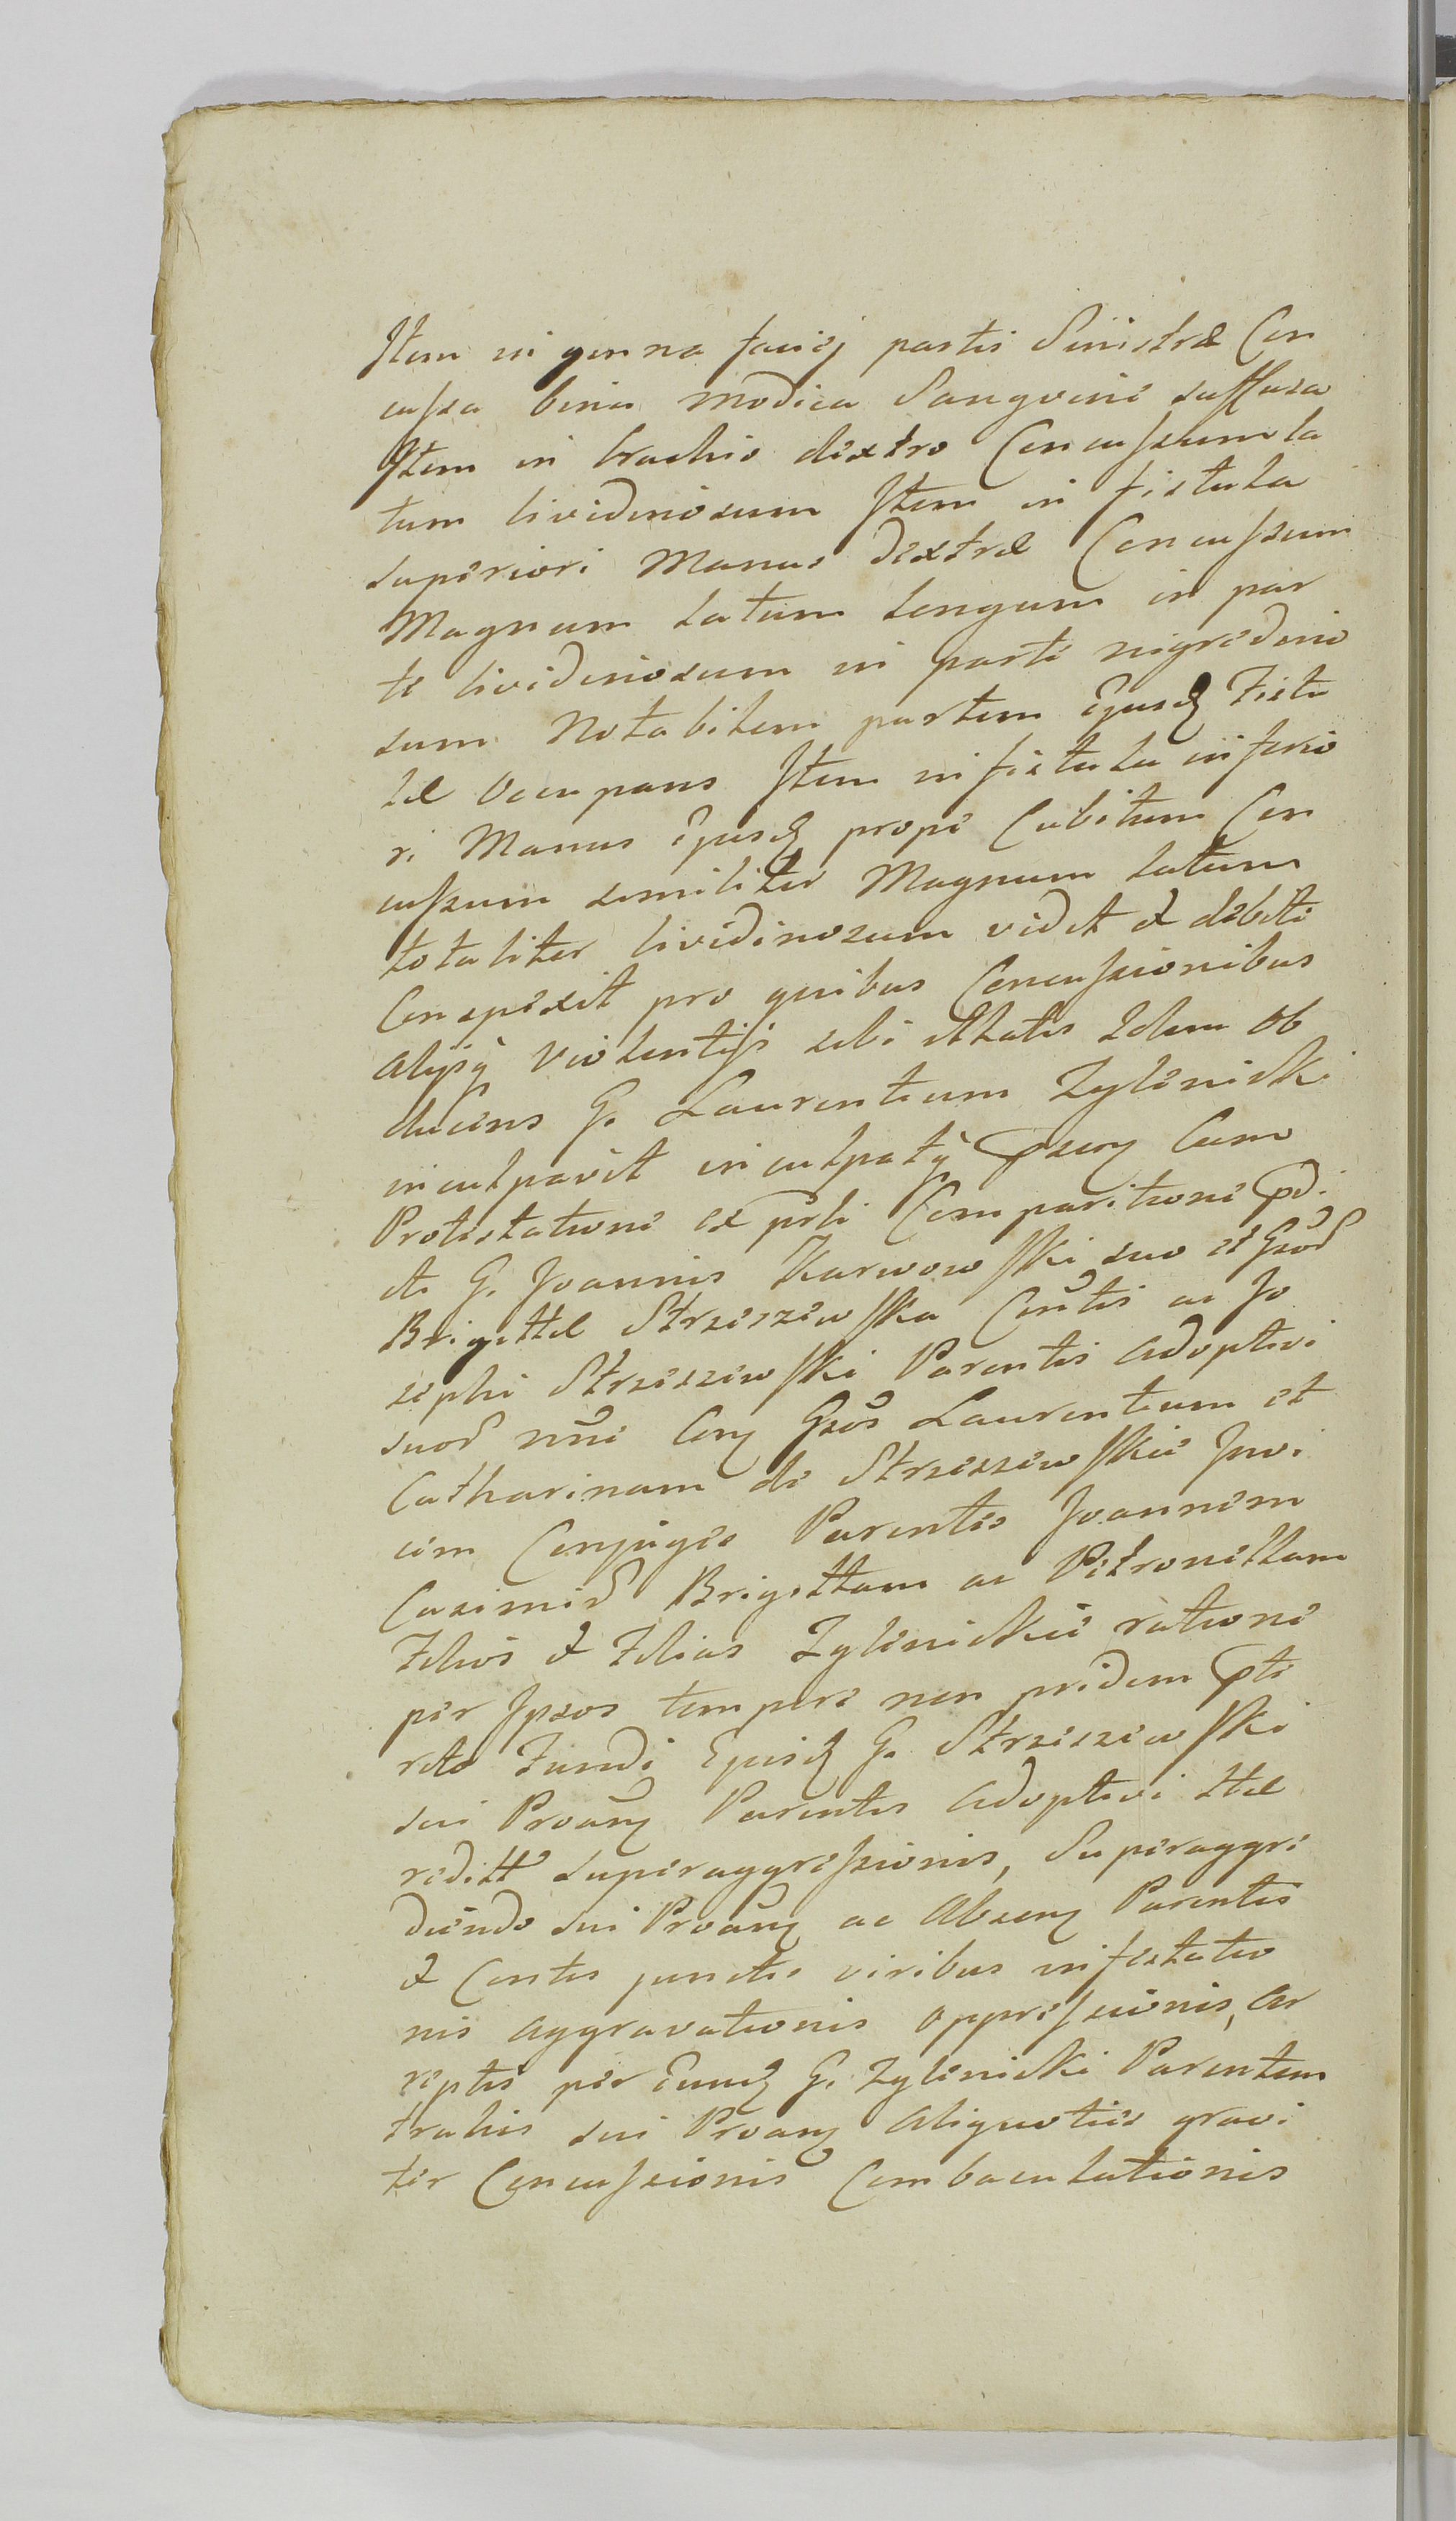 Item in genna faciej partis Sinistræ Con
cussa bina modica Sangvine suffusa
Item in brachio dextro Concussum la
tum lividinosum Item in fistula
superiori Manus dextræ Concussum
Magnum latum longum in par
te lividinosum in parte nigredino
sum Notabilem partem Ejusd Fistu
læ Occupans Item in fistula inferio
ri Manus Ejusd prope Cubitum Con
cussum similiter Magnum latum
totaliter lividinosum vidit & debite
Conspexit pro quibus Concussionibus
alijsq violentijs sibi illatis Idem Ob
ducens G. Laurentium Zylinicki
inculpavit inculpatq Cum
Protestatione ex prli Comparitione
ti G. Joannis Karwowski suo et Gsor
Brigittæ Strzeszewska Contis ac Jo
sephi Strzeszewski Parentis adoptivi
suor nne Con Gsos Laurentium et
Catharinam de Strzeszewskie Invi
cem Conjuges Parentes Joannem
Casimir Brigittam ac Petronillam
Filios & Filias Zylinickie ratione
per Ipsos tempore non pridem pte
rito Fundi Ejusd G. Strzeszewski
sui Proãn Parentis adoptivi Hæ
reditt superaggressionis, Superaggre
diendo sui Proãn ac Absen Parentis
& Contis junctis viribus infestatio
nis aggravationis oppressionis, ar
reptis per Eund G. Zylinicki Parentem
trahis sui Proãn aliquoties gravi
ter Concussionis Combaculationis